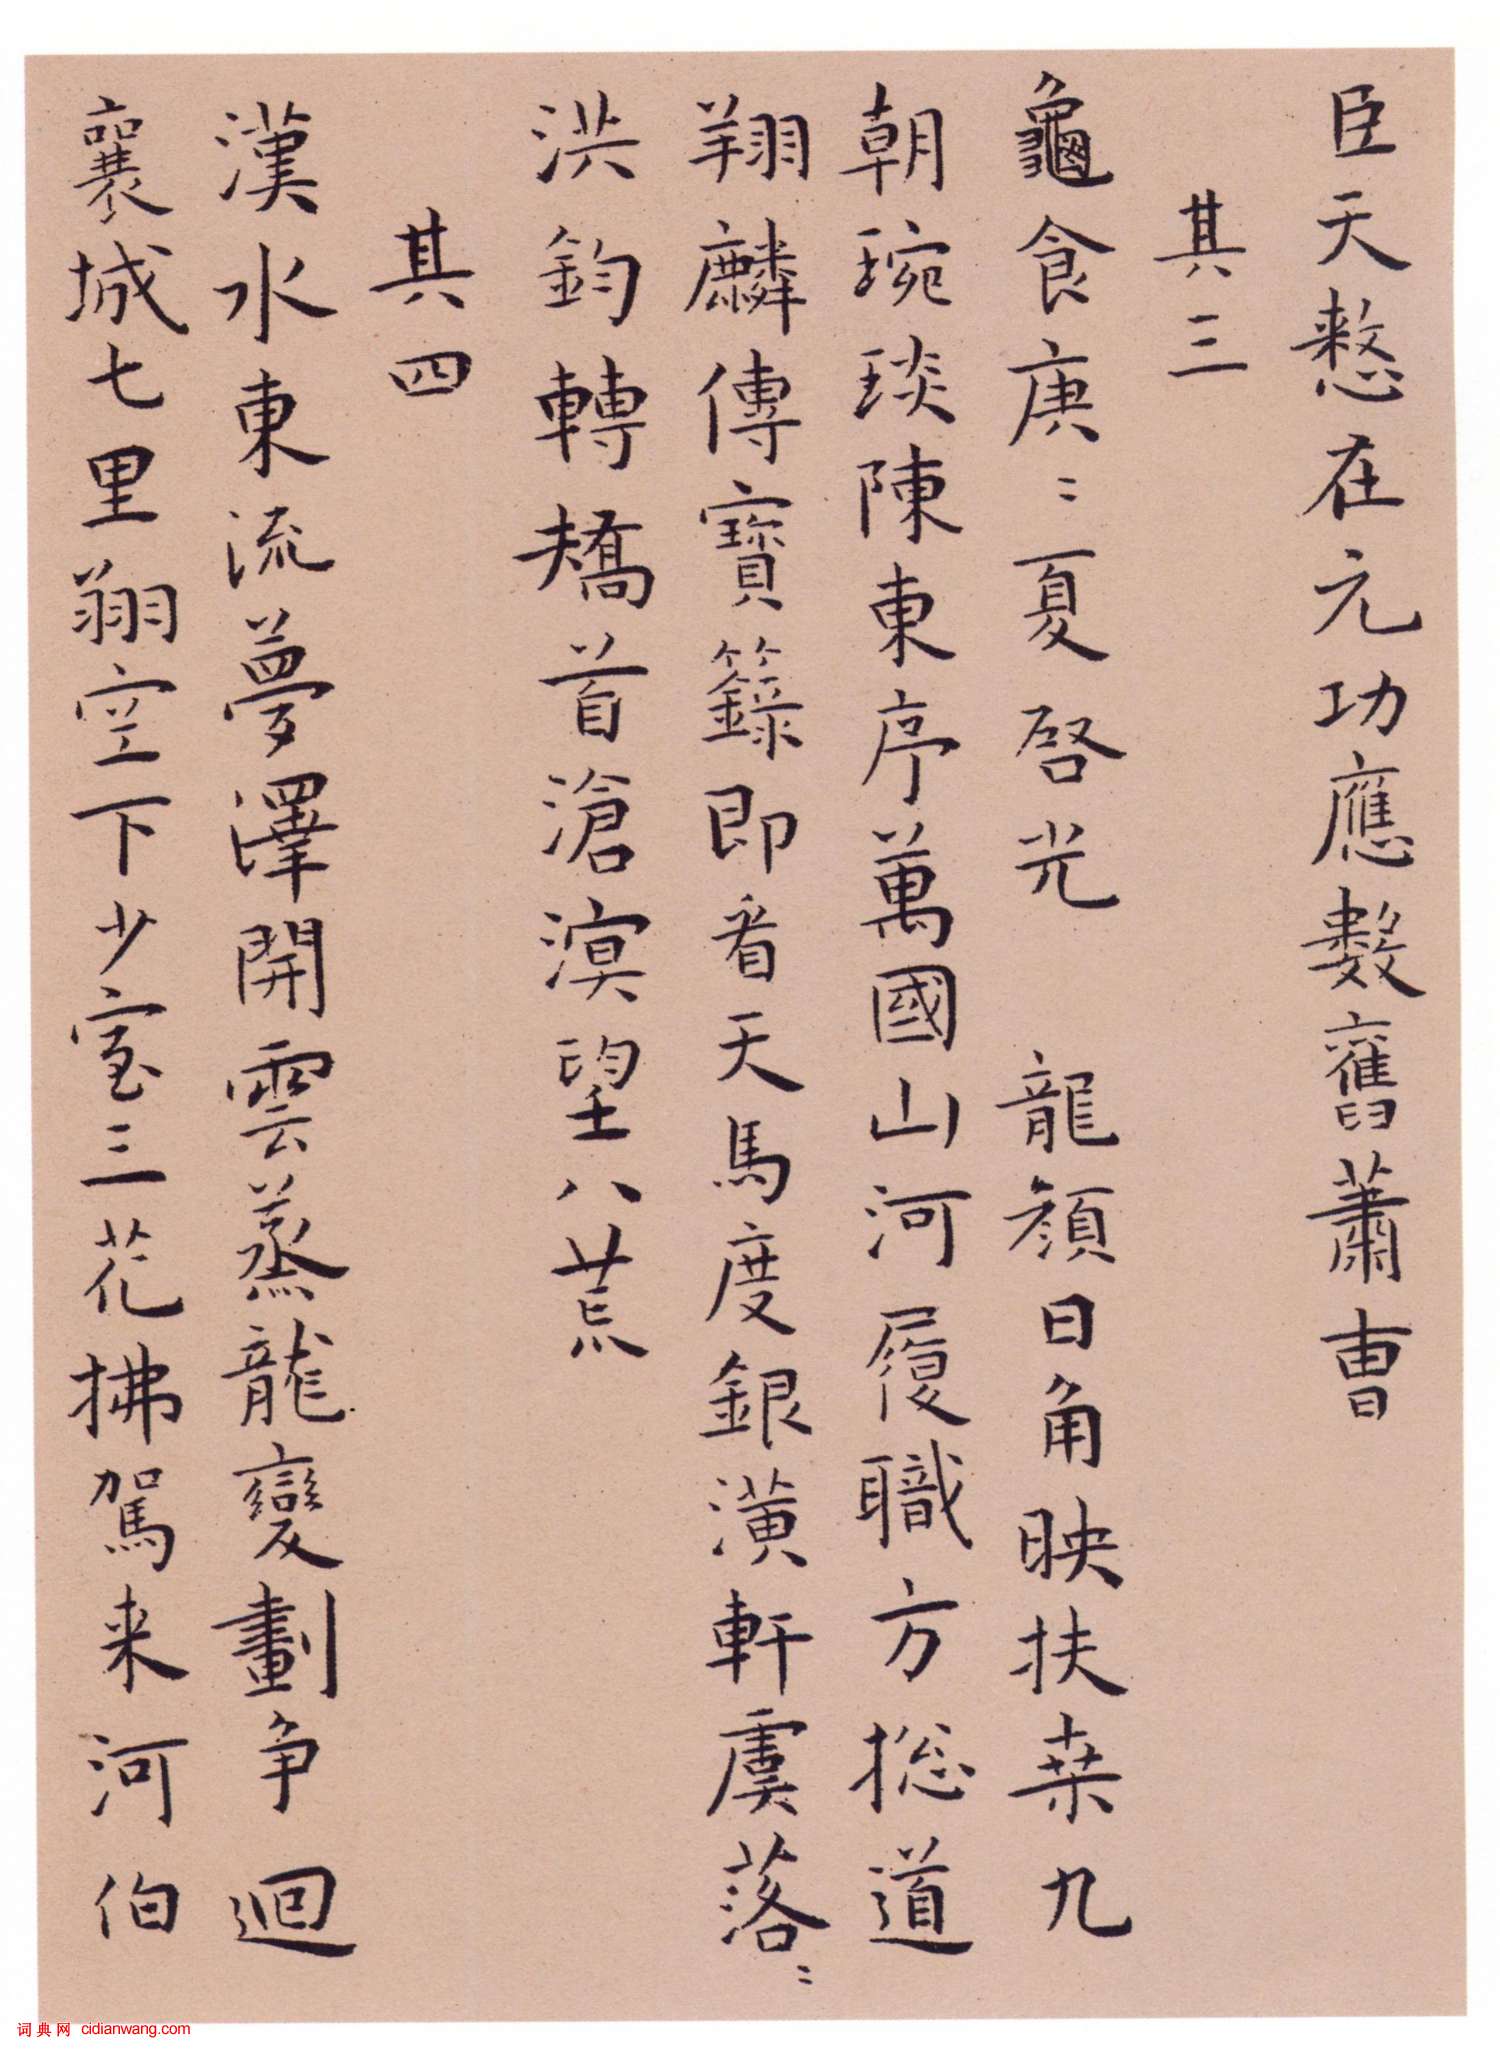 臣天憖在元功應數舊蕭曹
其三
龜食庚〻夏啓光　龍顔日角映扶桒九
朝琬琰陳東序萬國山河履職方揔道
翔麟傳寶籙即看天馬度銀潢軒虞落〻
洪鈞轉矯首滄溟望八荒
其四
漢水東流夢澤開雲蒸龍變劃争迴
襄城七里翔空下少室三花拂駕来河伯
词典网 cidianwang.com